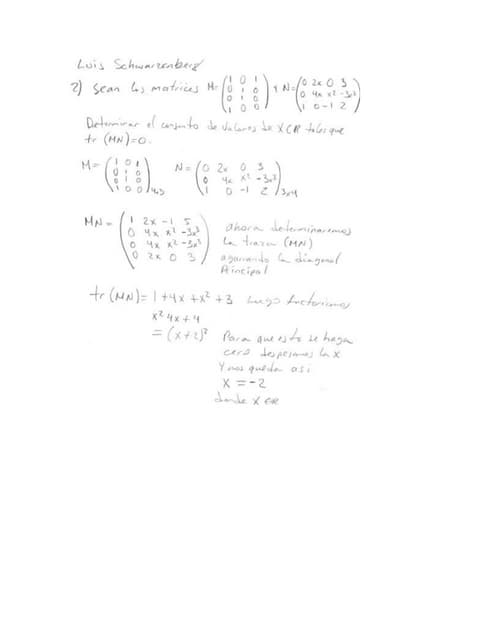 Luis Schwarzenberg
2) Sean las matrices M=(1 0 1 / 0 1 0 / 0 1 0 / 1 0 0) y N=(0 2x 0 3 / 0 4x x² -3x³ / 1 0 -1 2)
Determinar el conjunto de valores de x∈R tales que
tr (MN)=0.
M=(1 0 1 / 0 1 0 / 0 1 0 / 1 0 0)4x3 N=(0 2x 0 3 / 0 4x x² -3x³ / 1 0 -1 2)3x4
MN=(1 2x -1 5 / 0 4x x² -3x³ / 0 4x x² -3x³ / 0 2x 0 3)
ahora determinaremos
la traza (MN)
agarrando la diagonal
Principal
tr (MN)= 1+4x+x²+3 luego factorizamos
x² 4x+4
= (x+2)²
Para que esto se haga
cero despejamos la x
Y nos queda asi
x = -2
donde x ∈R